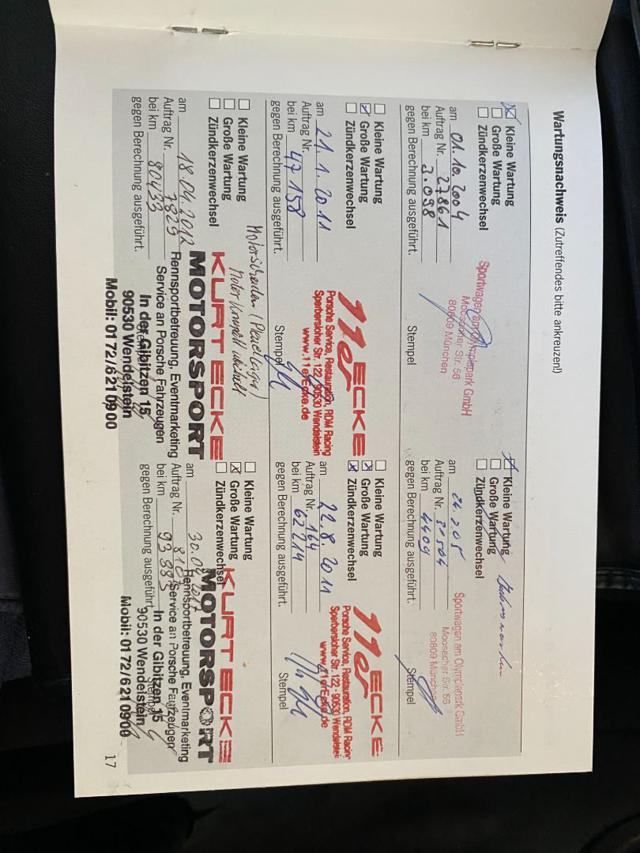 Wartungsnachweis (Zutreffendes bitte ankreuzen!)
Kleine Wartung
Große Wartung
Zündkerzenwechsel
am 01.10.2004
Auftrag Nr. 27861
bei km 3.098
gegen Berechnung ausgeführt.
Sportwagen am Olympiapark GmbH
Moosacher Str. 56
80809 München
Stempel
Kleine Wartung
Große Wartung
Zündkerzenwechsel
am
Auftrag Nr. 31504
bei km 4409
gegen Berechnung ausgeführt.
Sportwagen am Olympiapark GmbH
Moosacher Str. 56
80809 München
Stempel
Kleine Wartung
Große Wartung
Zündkerzenwechsel
am 21.1.2011
Auftrag Nr.
bei km 47158
gegen Berechnung ausgeführt.
11er ECKE
Porsche Service, Restauration, RDM Racing
Sperbersloher Str. 122, 90530 Wendelstein
www.11erEcke.de
Stempel
Kleine Wartung
Große Wartung
Zündkerzenwechsel
am 22.8.2011
Auftrag Nr. 164
bei km 62214
gegen Berechnung ausgeführt.
11er ECKE
Porsche Service, Restauration, RDM Racing
Sperbersloher Str. 122, 90530 Wendelstein
www.11erEcke.de
Stempel
Kleine Wartung
Große Wartung
Zündkerzenwechsel
am 18.04.2012
Auftrag Nr. 7829
bei km 80433
gegen Berechnung ausgeführt.
Motorschaden (Pleuellager)
Motor komplett
KURT ECKE
MOTORSPORT
Rennsportbetreuung, Eventmarketing
Service an Porsche Fahrzeugen
In der Gibitzen 15
90530 Wendelstein
Mobil: 0172/6210900
Kleine Wartung
Große Wartung
Zündkerzenwechsel
am
Auftrag Nr.
bei km 93383
gegen Berechnung ausgeführt.
KURT ECKE
MOTORSPORT
Rennsportbetreuung, Eventmarketing
Service an Porsche Fahrzeugen
In der Gibitzen 15
90530 Wendelstein
Mobil: 0172/6210900
17